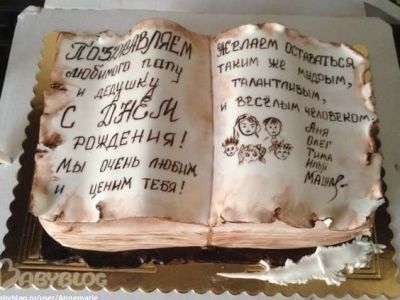 Поздравляем
любимого папу
и дедушку
с Днём
рождения!
Мы очень любим
и ценим тебя!
Желаем оставаться
таким же мудрым,
талантливым,
и весёлым человеком
Аня
Олег
Тима
Илья
Маша
BABYBLOG
babyblog.ru/user/Annemarie